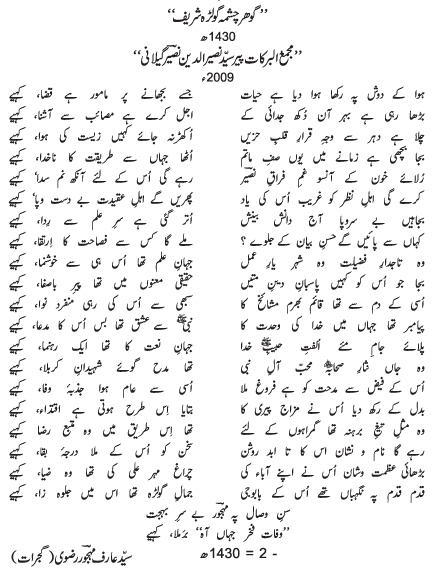 ’’گوہر چشمہ گولڑہ شریف‘‘
1430ھ
’’مجمع البرکات پیر سیّد نصیر الدین نصیرؔ گیلانی‘‘
2009ء
ہوا کے دوش پہ رکھا ہوا دیا ہے حیات جسے بجھانے پر مامور ہے قضا، کہیے
بڑھا رہی ہے بہر آن دُکھ جدائی کے اجل کرے ہے مصائب سے آشنا، کہیے
چلا ہے دہر سے وجہِ قرارِ قلبِ حزیں اُکھڑ نہ جائے کہیں زیست کی ہوا، کہیے
بجا بچھی ہے زمانے میں یوں صفِ ماتم اُٹھا جہاں سے طریقت کا ناخدا، کہیے
رُلائے خون کے آنسو غمِ فراقِ نصیرؔ رہے گی اُس کے لئے آنکھ نم سدا، کہیے
کرے گی اہلِ نظر کو غریب اُس کی یاد پھریں گے اہلِ عقیدت بے دست و پا، کہیے
بجا ہیں بے سروپا آج دانش بینش اُتر گئی ہے سرِ علم سے رِدا، کہیے
کہاں سے پائیں گے حسنِ بیان کے جلوے؟ ملے گا کس سے فصاحت کا اِرتقا، کہیے
وہ تاجدارِ فضیلت وہ شہر یارِ عمل جہانِ علم تھا اُس ہی سے خوشنما، کہیے
بجا جو اُس کو کہیں پاسبانِ دینِ متیں حقیقی معنوں میں تھا پیرِ باصفا، کہیے
اُسی کے دم سے تھا قائم بھرم مشائخ کا سبھی سے اُس کی رہی منفرد نوا، کہیے
پیامبر تھا جہاں میں خدا کی وحدت کا نبیﷺ سے عشق تھا بس اُس کا مدعا، کہیے
پلائے جامِ مئے اُلفتِ حبیبِﷺ خدا جہانِ نعت کا تھا ایک رہنما، کہیے
وہ جاں نثارِ صحابہؓ محبِّ آلِ نبی تھا مدح گوئے شہیدانِ کربلا، کہیے
اُس کے فیض سے مدحت کو ہے فروغ ملا اُسی سے عام ہوا جذبۂ وفا، کہیے
بدل کے رکھ دیا اُس نے مزاج پیری کا بتایا اِس طرح ہوتی ہے اقتداء، کہیے
وہ مثلِ تیغِ برہنہ تھا گمراہوں کے لئے تھا اِس طریق میں وہ متبعِ رضا کہیے
رہے گا نام و نشان اس کا تا ابد روشن سخن کو اُس کے ملا درجۂ بقا، کہیے
بڑھائی عظمت و شان اُس نے اپنے آباء کی چراغِ مہر علی کی تھا وہ ضیا، کہیے
قدم قدم پہ نگہباں تھے اُس کے بابوجی جمالِ گولڑہ تھا اس میں جلوہ زا، کہیے
سنِ وصال پہ مہجورؔ بے سرِ بہجت
’’وفات فخر جہاں آہ‘‘ برملا، کہیے
1430 = 2 - ھ
سیّد عارف مہجورؔ رضوی (گجرات)